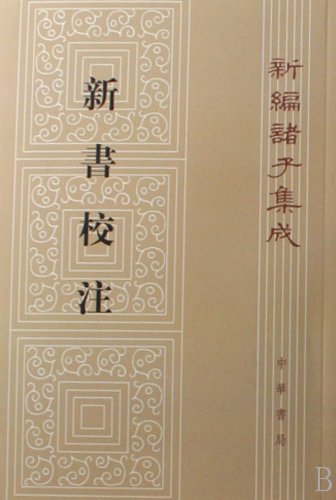 新編諸子集成
新書校注
中華書局
B